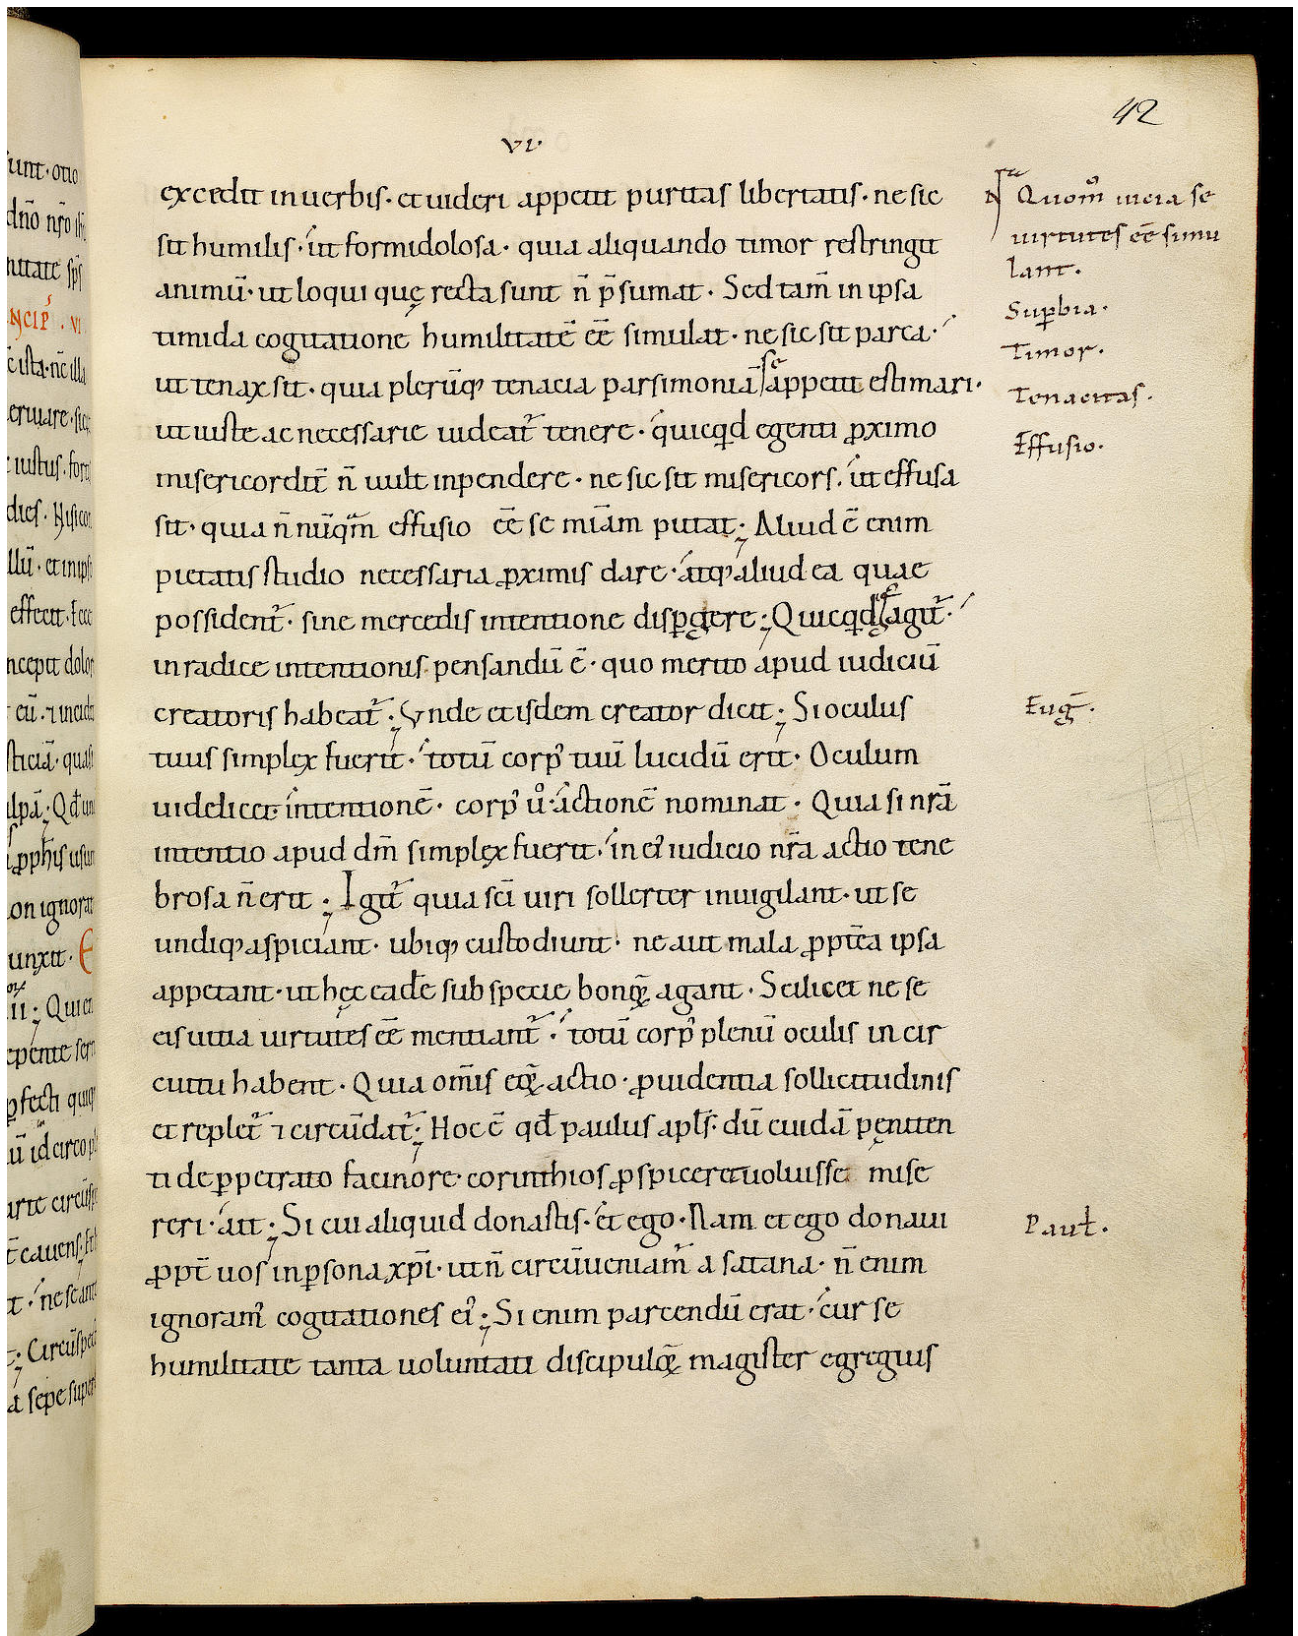 42
VI·
excedit in uerbis· et uideri appetit puritas libertatis· ne sic
sit humilis· ut formidolosa· quia aliquando timor restringit
animū· ut loqui quę recta sunt n̄ p̄sumat· Sed tam̄ in ipsa
timida cogitatione humilitatē eē simulat· ne sic sit parca·
ut tenax sit· quia plerūq; tenacia parsimoniā se appetit estimari·
ut iuste ac necessarie uideat᷑ tenere· quicqd egenti ꝓximo
misericordit̄ n̄ uult inpendere· ne sic sit misericors· ut effusa
sit· quia n̄nūq̄m effusio eē se miām putat; Aliud ē enim
pietatis studio necessaria ꝓximis dare· atq; aliud ea quae
possident᷑· sine mercedis intentione disꝑgere; Quicqd g̊ agit᷑·
in radice intentionis pensandū ē· quo merito apud iudiciū
creatoris habeat᷑; Vnde et isdem creator dicit; Si oculus
tuus simplex fuerit· totū corpꝰ tuū lucidū erit· Oculum
uidelicet intentionē· corpꝰ ů actionē nominat· Quia si nr̄a
intentio apud dm̄ simplex fuerit· in eiꝰ iudicio nr̄a actio tene
brosa n̄ erit; Igit᷑ quia sc̄i uiri sollerter inuigilant· ut se
undiq; aspiciant· ubiq; custodiunt· ne aut mala ꝓpt̄ea ipsa
appetant· ut hęc eadē sub specie bonoꝝ agant· Scilicet ne se
eis uitia uirtutes eē mentiant᷑· totū corpꝰ plenū oculis in cir
cuitu habent· Quia om̄is eoꝝ actio· ꝓuidentia sollicitudinis
et replet᷑ ⁊ circūdat᷑; Hoc ē qđ paulus apl̄s· dū cuidā pęniten
ti de ꝑpetrato facinore· corinthios ꝓspiceret uoluisse mise
reri· ait; Si cui aliquid donastis· et ego· Nam et ego donaui
ꝓpt̄ uos in ꝑsona xp̄i· ut n̄ circūueniam᷑ a satana· n̄ enim
ignoramꝰ cogitationes eiꝰ; Si enim parcendū erat· cur se
humilitate tanta uoluntati discipuloꝝ magister egregius
Quom̊ uicia se
uirtutes eē simu
lant·
Suꝑbia·
Timor·
Tenacitas·
Effusio·
Eug̅·
Paul̵·